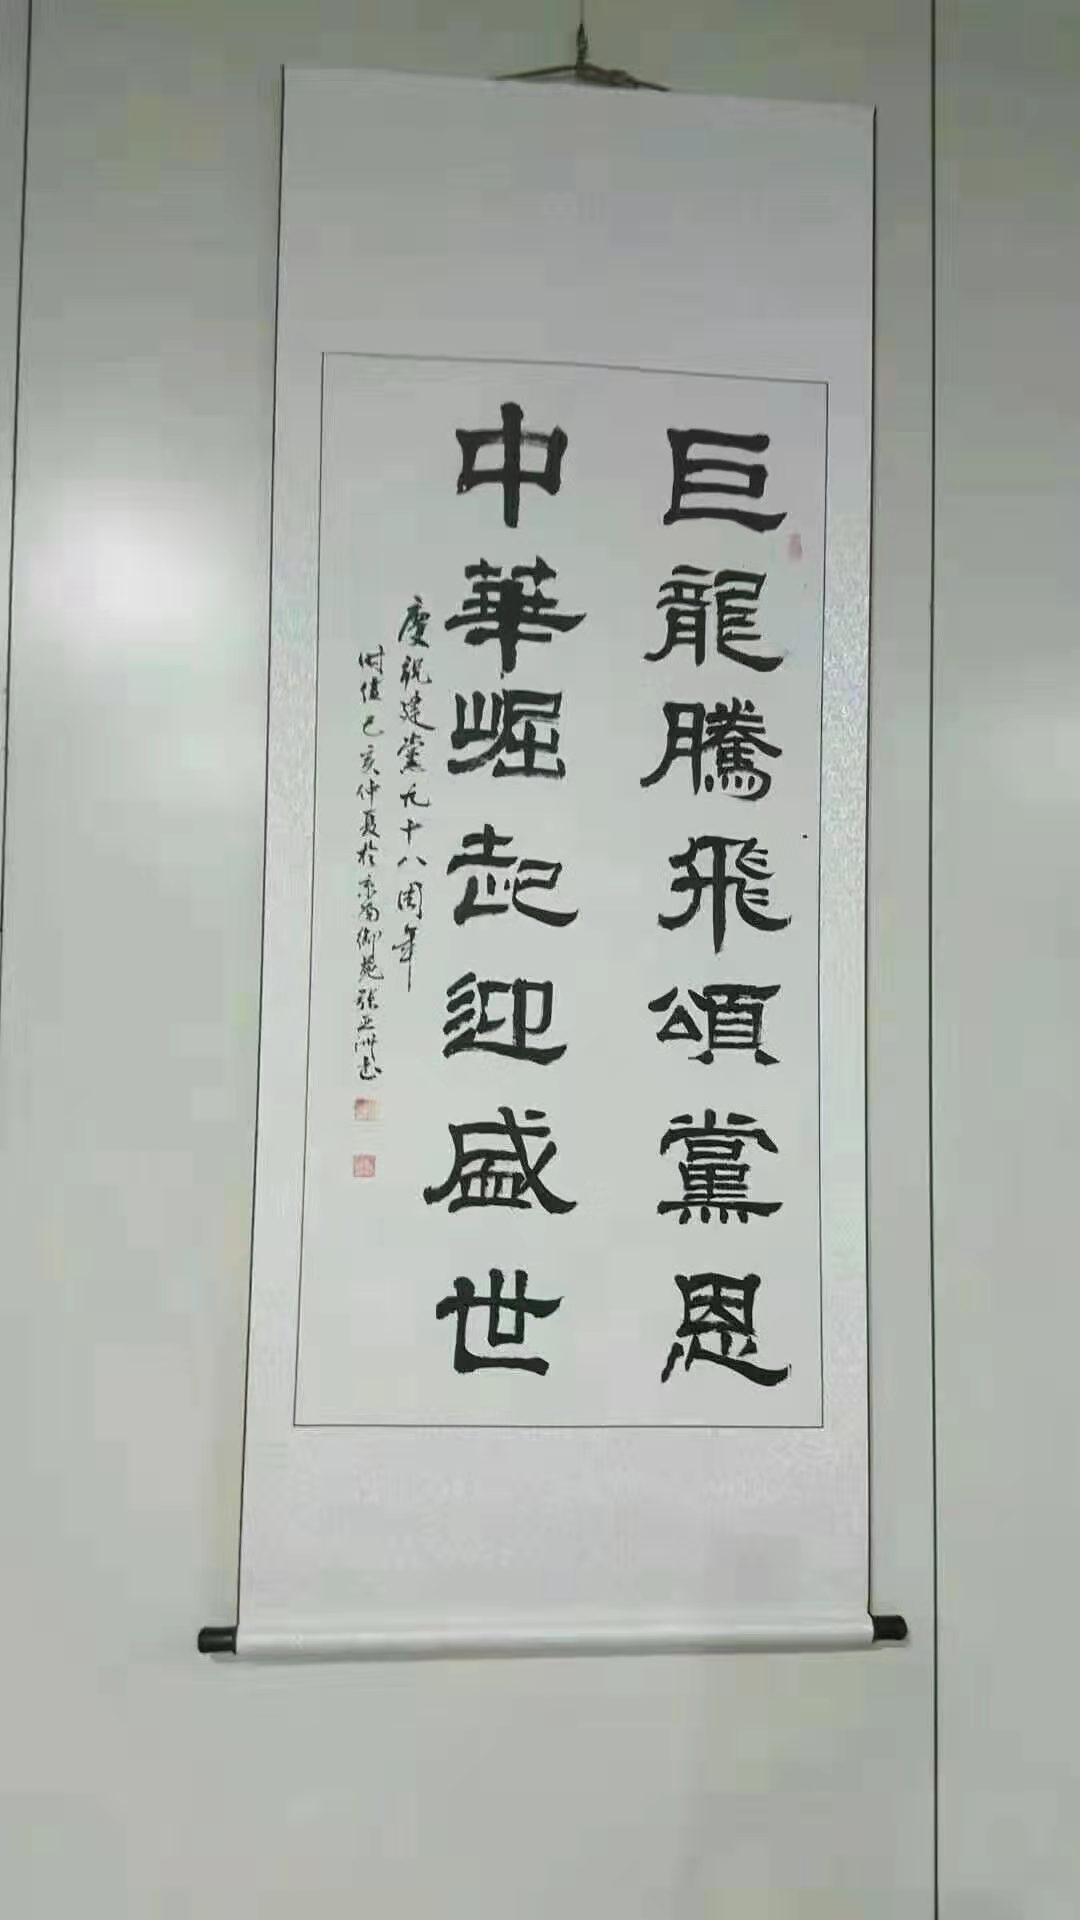 巨龍騰飛頌黨恩
中華崛起迎盛世
慶祝建黨九十八周年
时值己亥仲夏於京南御苑张亚洲书